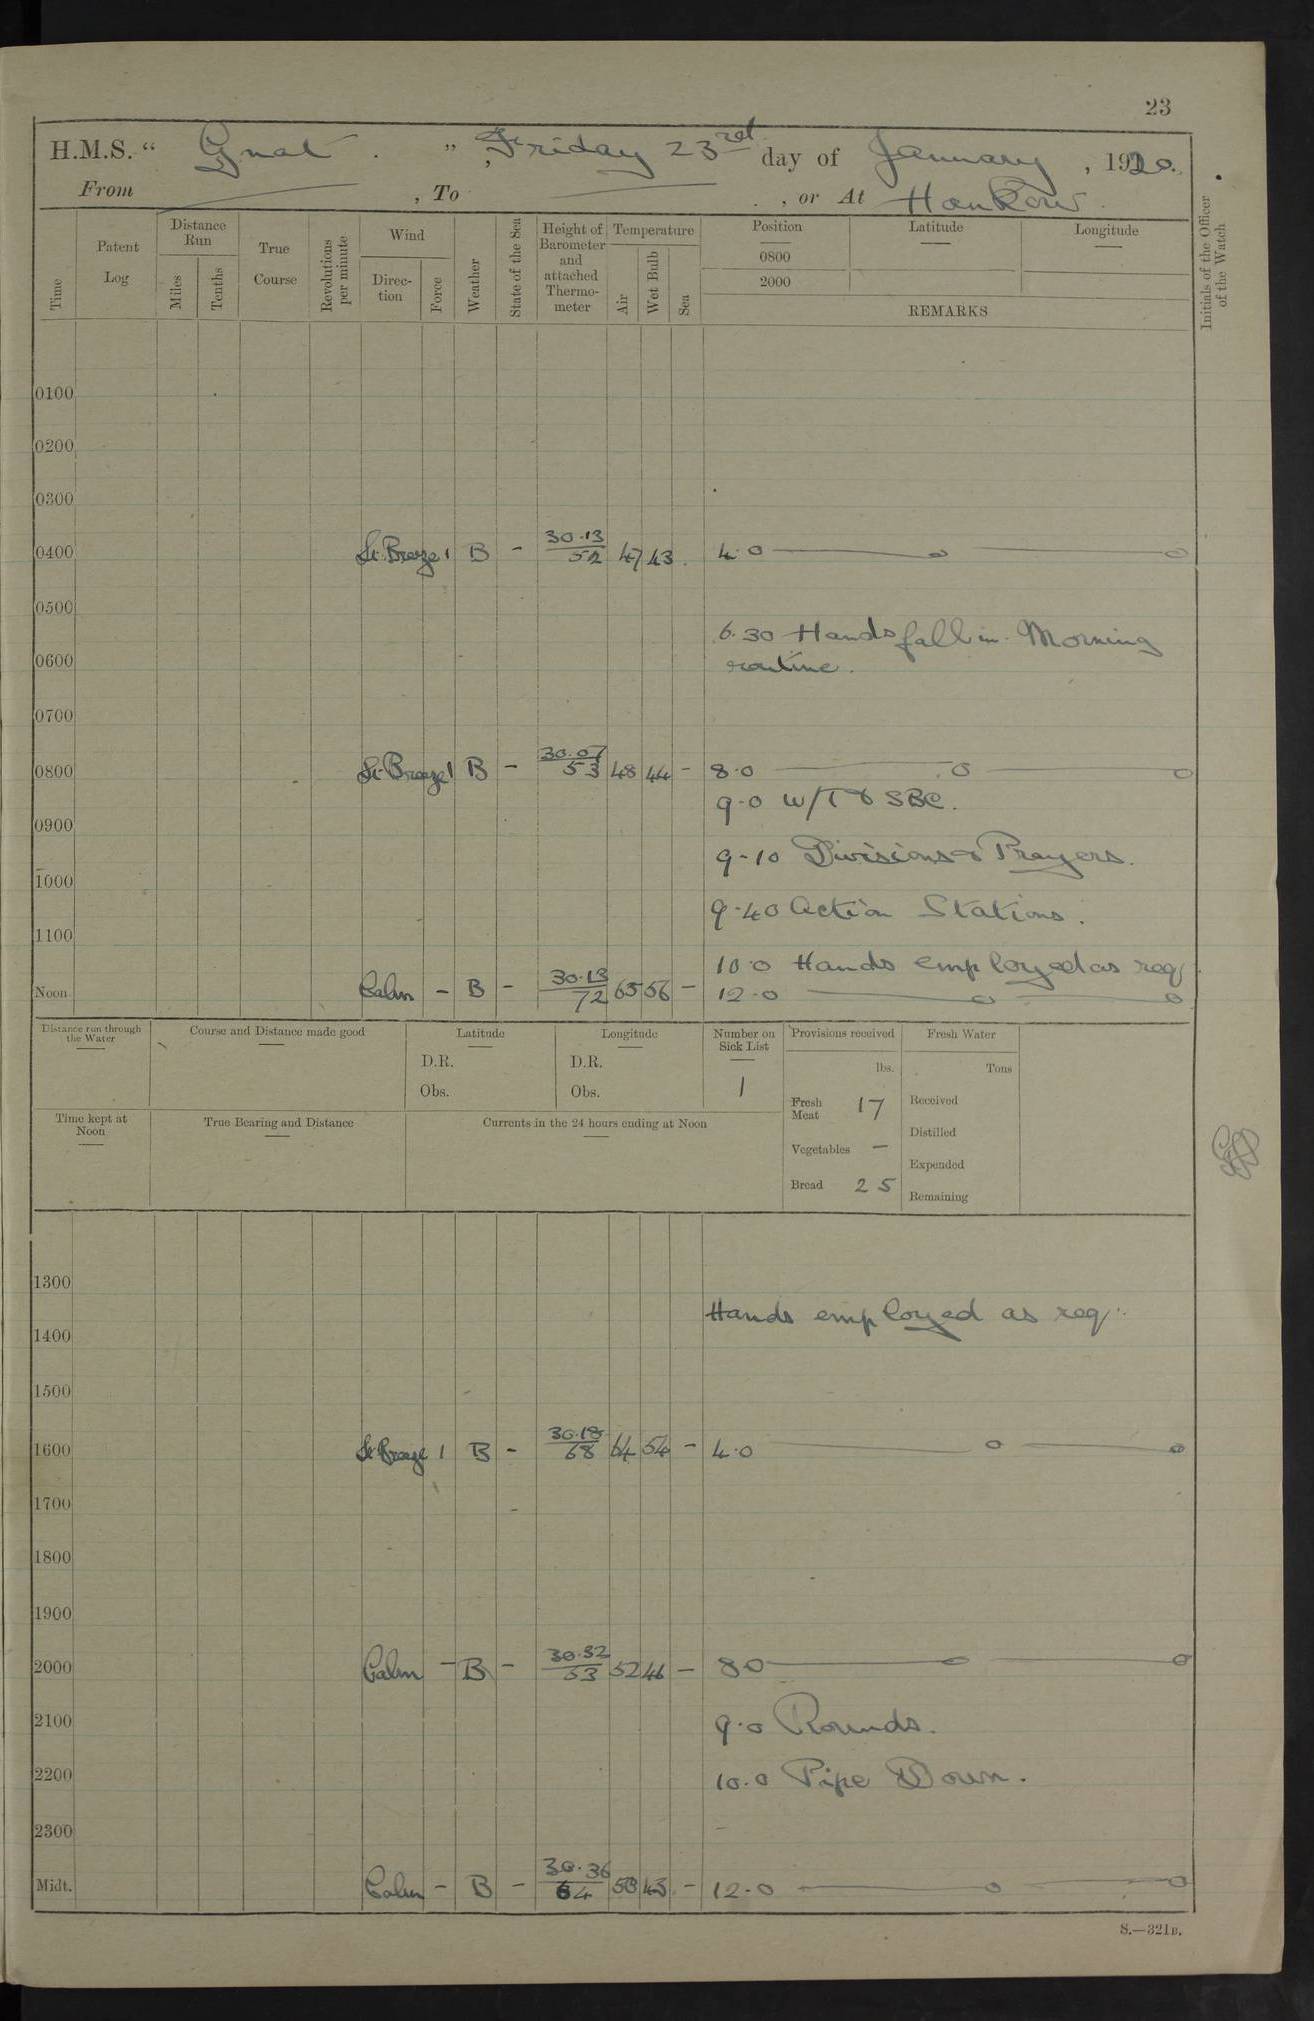 23
H.M.S. “ Gnat . ” , Friday 23rd day of January , 1920.
From , To , or At Hankow .
Time
Patent Log
Distance Run
Miles
Tenths
True Course
Revolutions per minute
Wind
Direction
Force
Weather
State of the Sea
Height of Barometer and attached Thermometer
Temperature
Air
Wet Bulb
Sea
Position
0800
2000
Latitude
Longitude
REMARKS
Initials of the Officer of the Watch
0100
0200
0300
0400 Lt. Breeze 1 B - 30.13 / 52 47 43 . 4.0
0500
6.30 Hands fall in. Morning
0600 routine.
0700
0800 Lt Breeze 1 B - 30.07 / 53 48 44 - 8.0
9.0 W/T & SBC.
0900
9-10 Divisions & Prayers.
1000
9.40 Action Stations.
1100
10.0 Hands employed as req
Noon. Calm - B - 30.13 / 72 65 56 - 12.0
Distance run through the Water
Course and Distance made good
Latitude
D.R.
Obs.
Longitude
D.R.
Obs.
Number on Sick List
1
Provisions received
lbs.
Fresh Meat 17
Vegetables —
Bread 25
Fresh Water
Tons
Received
Distilled
Expended
Remaining
Time kept at Noon
True Bearing and Distance
Currents in the 24 hours ending at Noon
1300
Hands employed as req:
1400
1500
1600 Lt Breeze 1 B - 30.18 / 68 64 54 - 4.0
1700
1800
1900
2000 Calm - B - 30.32 / 53 52 46 - 8 0
2100 9.0 Rounds.
2200 10.0 Pipe Down.
2300
Midt. Calm - B - 30.36 / 64 50 43 - 12.0
S.—321B.